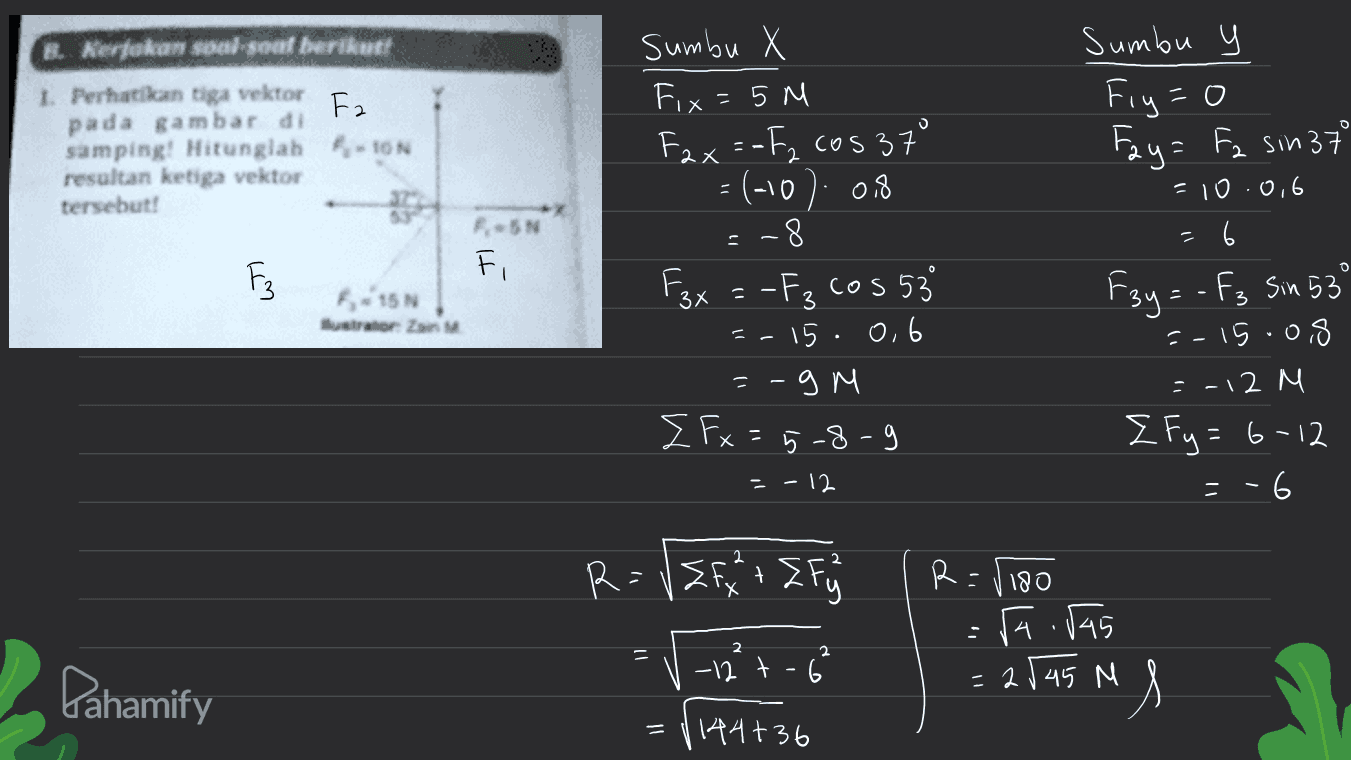 B. Kerjakan soal-soal berikut!
1. Perhatikan tiga vektor
pada gambar di
samping! Hitunglah
resultan ketiga vektor
tersebut!
F2
Y
F₂ = 10 N
37°
53°
X
F₁ = 5 N
F1
F3
F₃ = 15 N
Ilustrator: Zain M.
Sumbu X
F1x = 5 N
F2x = -F2 cos 37°
= (-10) . 0,8
= -8
F3x = -F3 cos 53°
= -15 . 0,6
= -9 N
ΣFx = 5 -8 -9
= -12
Sumbu y
F1y = 0
F2y = F2 sin 37°
= 10 . 0,6
= 6
F3y = -F3 sin 53°
= -15 . 0,8
= -12 N
ΣFy = 6 -12
= -6
R = √ΣFx² + ΣFy²
= √-12² + -6²
= √144+36
R = √180
= √4 . √45
= 2√45 N
Pahamify